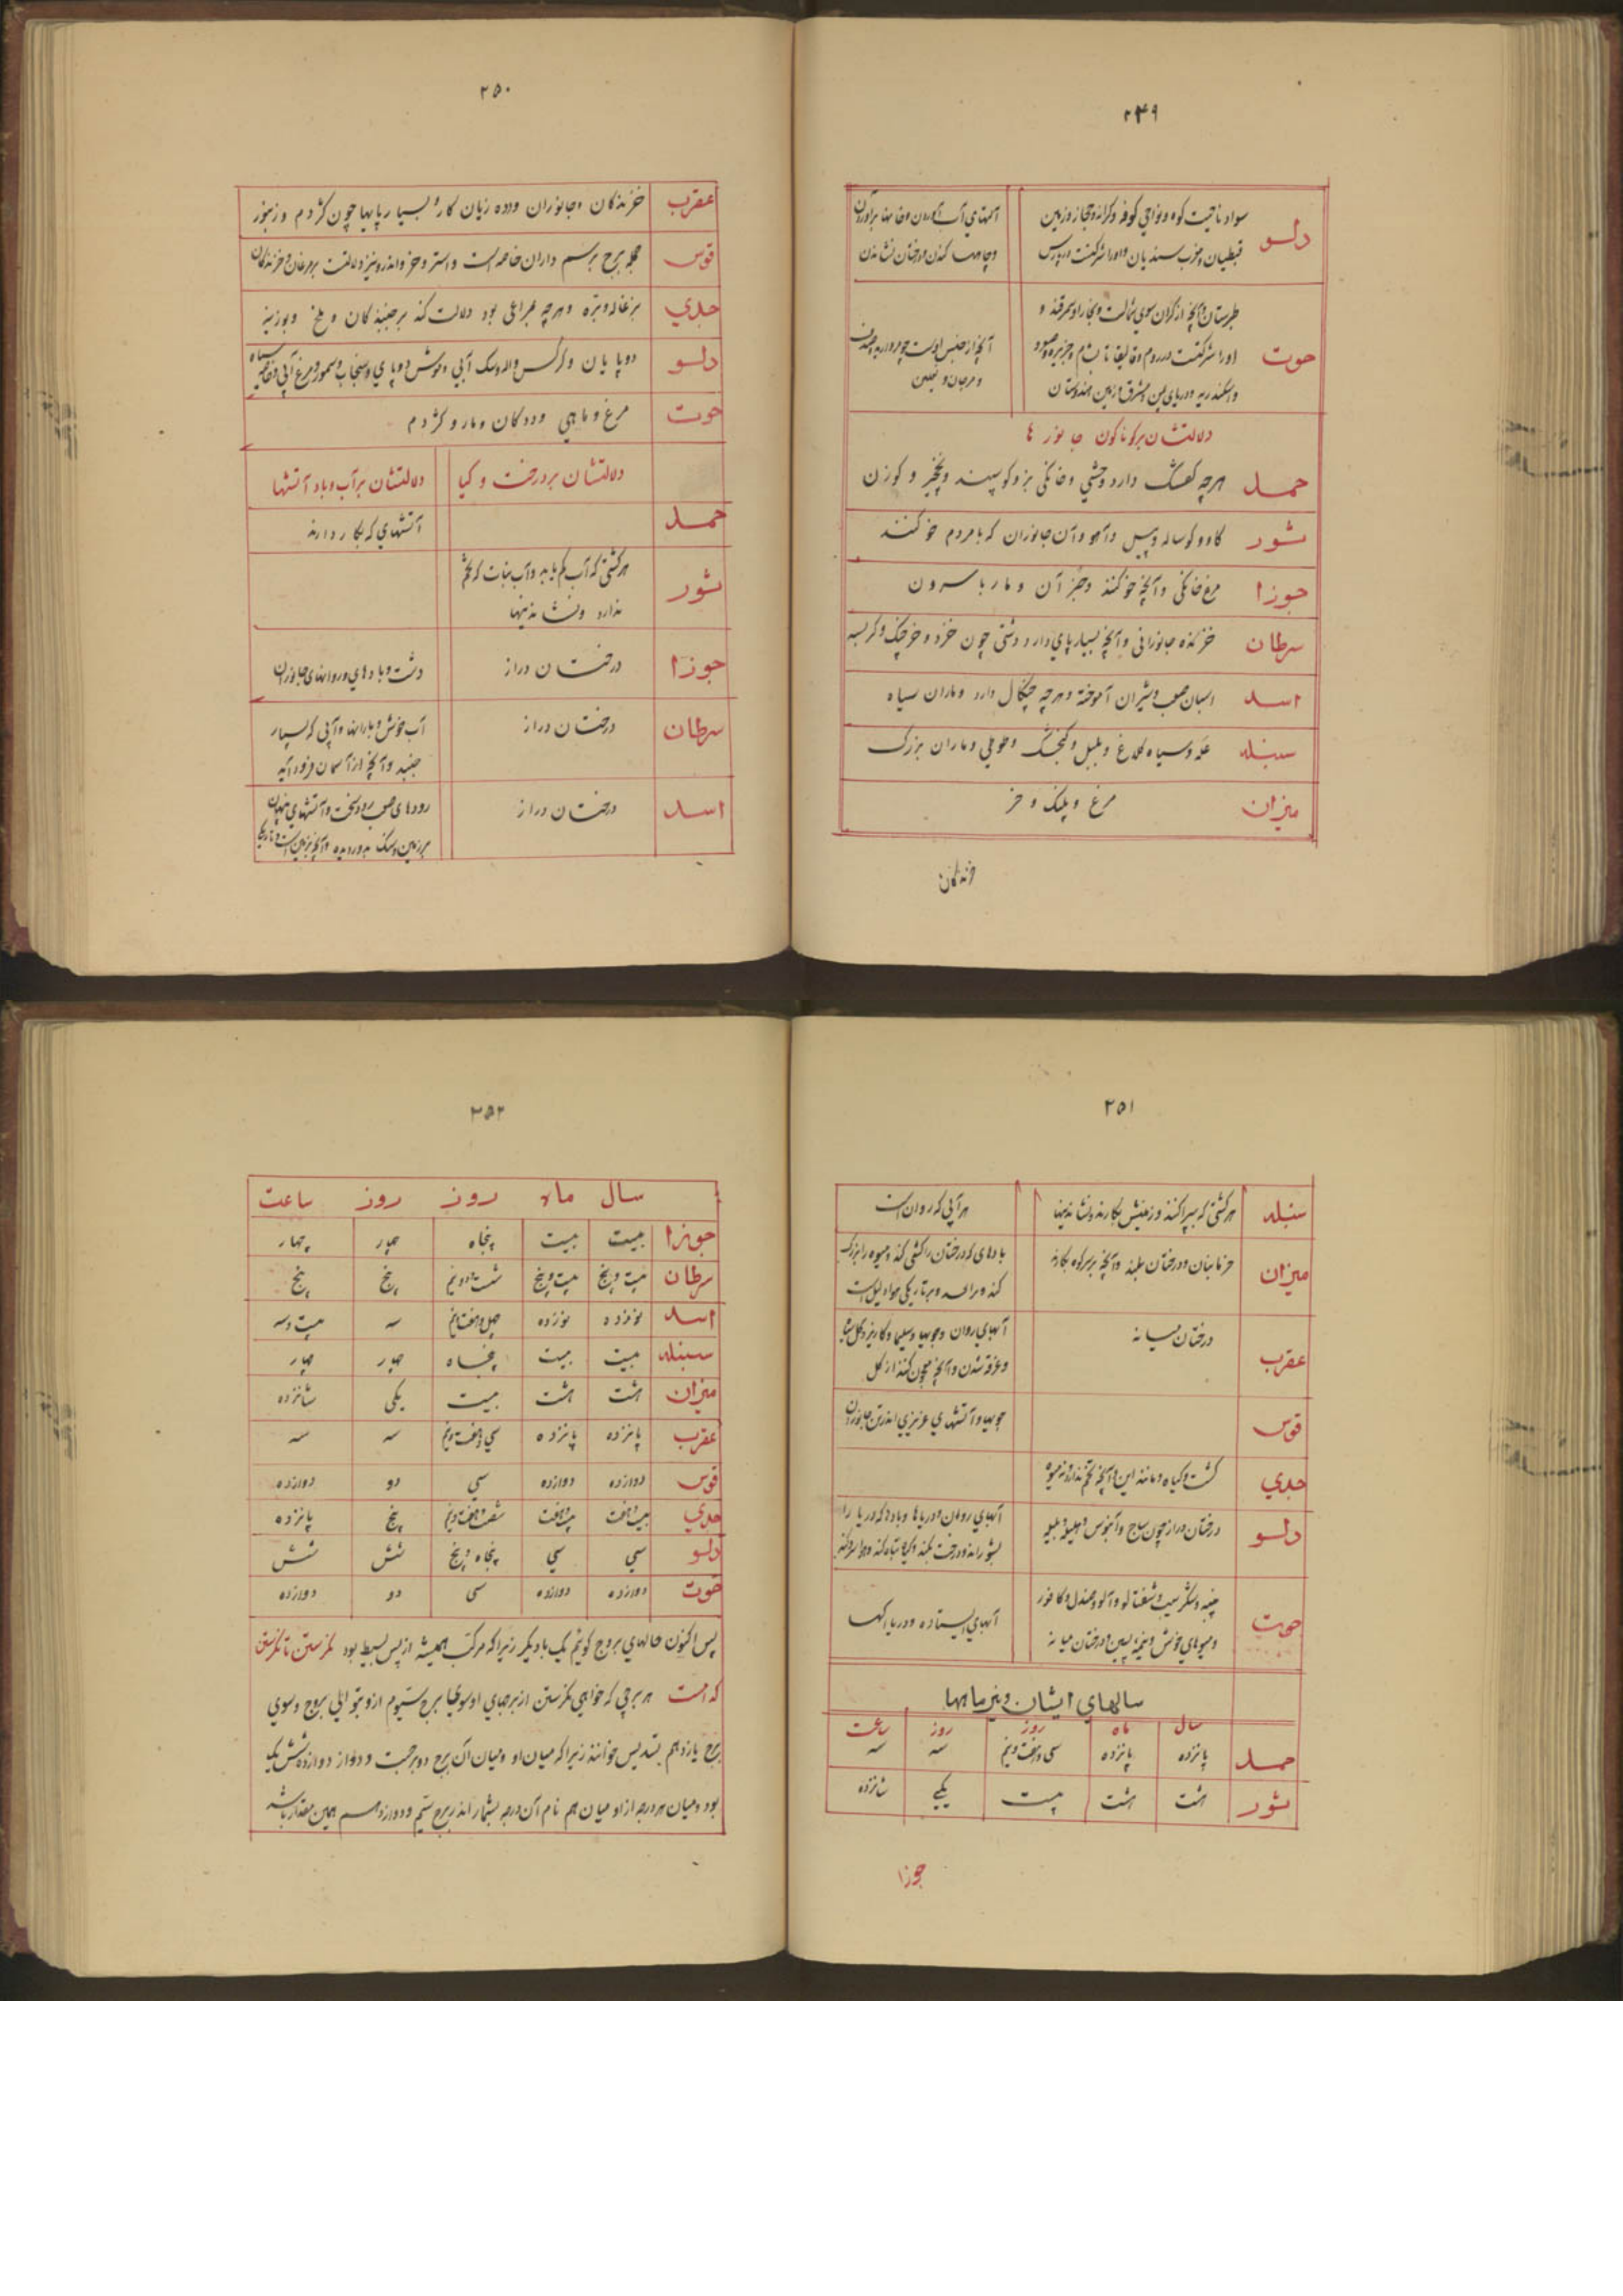 ۲۴۹
دلو سواد ناحیت کوه و نواحی کوفه و کرانه حجاز و زمین
قبطیان و مغرب سندیان و اورا شرکتست در پارس
وچاهها کندن و درختان نشاندن
طبرستان و آنچه از کران سوی شمالست و بخارا و سمرقند و
حوت اورا شرکتست در روم و قالیقلا تا شام و جزیره و مصر و
واسکندریه و دریای یمن و مشرق زمین هندوستان
دلالتشان بر کوناکون جانورها
حمل هرچه کفشک دارد وحشی و خانکی بز و کوسپند و نخچیر و کوزن
ثور کاو و کوساله و پیل و آهو و آن جانوران که با مردم خو کنند
جوزا مرغ خانکی و آنچه خو کند و جز آن و مار با سرون
سرطان خزنده جانورانی و آنچه بسیار پای دارد دشتی چون خنزد و خرچنک و کربسه
اسد اسبان صعب و شیران آموخته و هرچه چنکال دارد و ماران سیاه
سنبله عکه و سیاه کلاغ و بلبل و کنجشک و طوطی و ماران بزرک
میزان مرغ و پلنک و خر
خزندکان
۲۵۰
عقرب خزندکان و جانوران و دده زیان کار و بسیار پایها چون کژدم و زنبور
قوس جمله برج بر سم داران خاصه است و استر و خر و اندر ونیز دلالتست بر مرغان و خزندکان
جدی بزغاله و بره و هرچه بز اهلی بود دلالت کند بر جنبندکان و ملخ و بوزینه
دلو دوپایان و کرکس واله و سک آبی و موش دوپای و سنجاب و سمور و مرغ آبی وخاصه سیاه
حوت مرغ و ماهی و ددکان و مار و کژدم
دلالتشان بر درخت و کیا دلالتشان بر آب و باد و آتشها
حمل آتشهای که بکار دارند
ثور هرکشتی که آب کم یابد و آب نبات که تخم
ندارد و نشاندنیها
جوزا درختان دراز دشت و بادهای و روانهای جانوران
سرطان درختان دراز آب خوش و بارانها و آبی که بسیار
جنبد و آنچه از آسمان فرود آید
اسد درختان دراز رودهای صعب رو سخت و آتشهای پنهان
۲۵۱
سنبله هرکشتی که بپراکنند و زمینش بکارند و نشاندنیها هر آبی که روان است
میزان خرمابنان و درختان بلند و آنچه بر سر کوه بکارند بادهای که درختان را کشی کند و میوه را بزرک
کند و براند و بر تاریکی هوا دلیل است
عقرب درختان میانه آبهای روان و جویها و سیلها و کاریز و کل سیاه
و غرقه شدن و آنچه معجون کنند از کل
قوس جویها و آتشهای غریزی اندر تن جانوران
جدی کشت و کیاه و مانند این و آنچه تخم ندارد و نه میوه
دلو درختان دراز چون ساج و آبنوس و هلیله و بلیله آبهای روان و دریاها و بادها که دریا را
حوت پنبه و شکر سیب و شفتالو و آلو و صندل و کافور
و میوهای خوش و نیز پسین درختان میانه آبهای ایستاده و دریاکها
سالهای ایشان و نیز ماهها
سال ماه روز روز ساعت
حمل پانزده پانزده سی و هفت و نیم سه سه
ثور هشت هشت بیست یکی شانزده
جوزا
۲۵۲
سال ماه روز روز ساعت
جوزا بیست بیست پنجاه چهار چهار
سرطان بیست و پنج بیست و پنج شست و دو و نیم پنج پنج
اسد نوزده نوزده چهل و هفت و نیم سه بیست و سه
سنبله بیست بیست پنجاه چهار چهار
میزان هشت هشت بیست یکی شانزده
عقرب پانزده پانزده سی و هفت و نیم سه سه
قوس دوازده دوازده سی دو دوازده
جدی بیست و هفت بیست و هفت شصت و هفت و نیم پنج پانزده
دلو سی سی پنجاه و پنج شش شش
حوت دوازده دوازده سی دو دوازده
پس اکنون حالهای بروج کوئیم یک با دیکر زیرا که مرکب همیشه از پس بسیط بود نکرستن تا نکرستن
کدامست هر برجی که خواهی نکرستن از برجهای او سوی برج سیوم از و بتوالی بروج و سوی
برج یازدهم بتسدیس خوانند زیرا که میان او و میان آن برج دو برجست و دو از دوازده شش یک
بود و میان هر درجه از او میان هم نام آن درجه بشمار اندر برج سیم و دوازدهم همین مقدار باشد